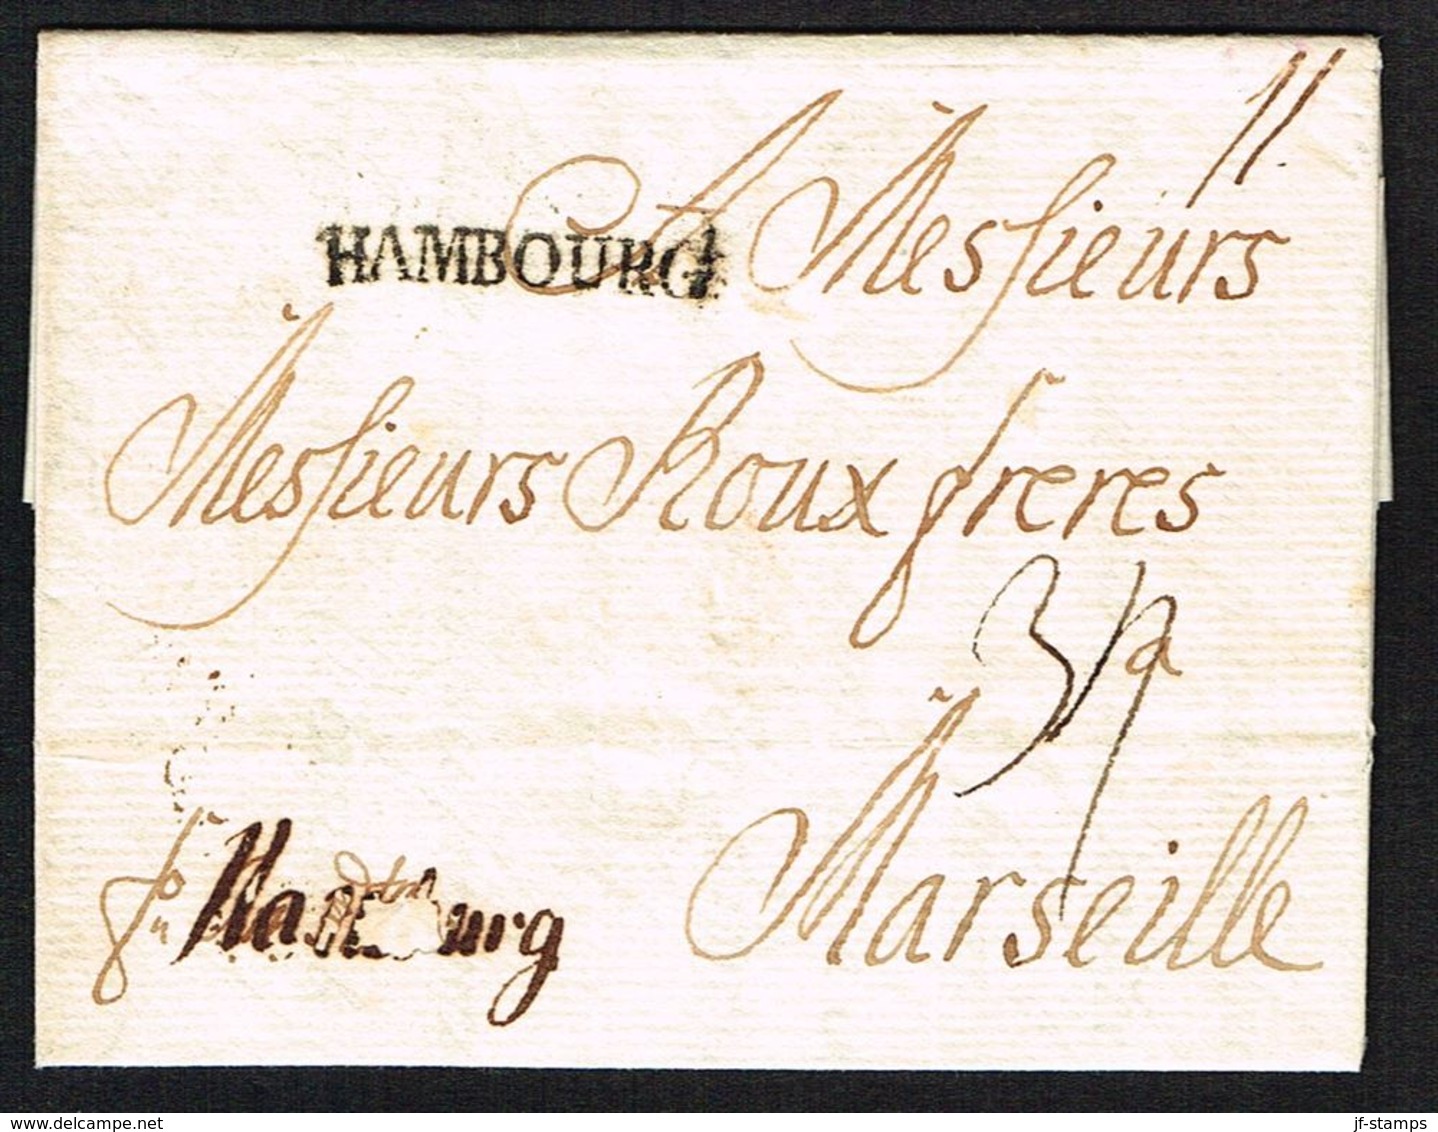 11
HAMBOURG
A Messieurs
Messieurs Roux freres
a
Marseille
fco Hambourg
delcampe.net
jf-stamps